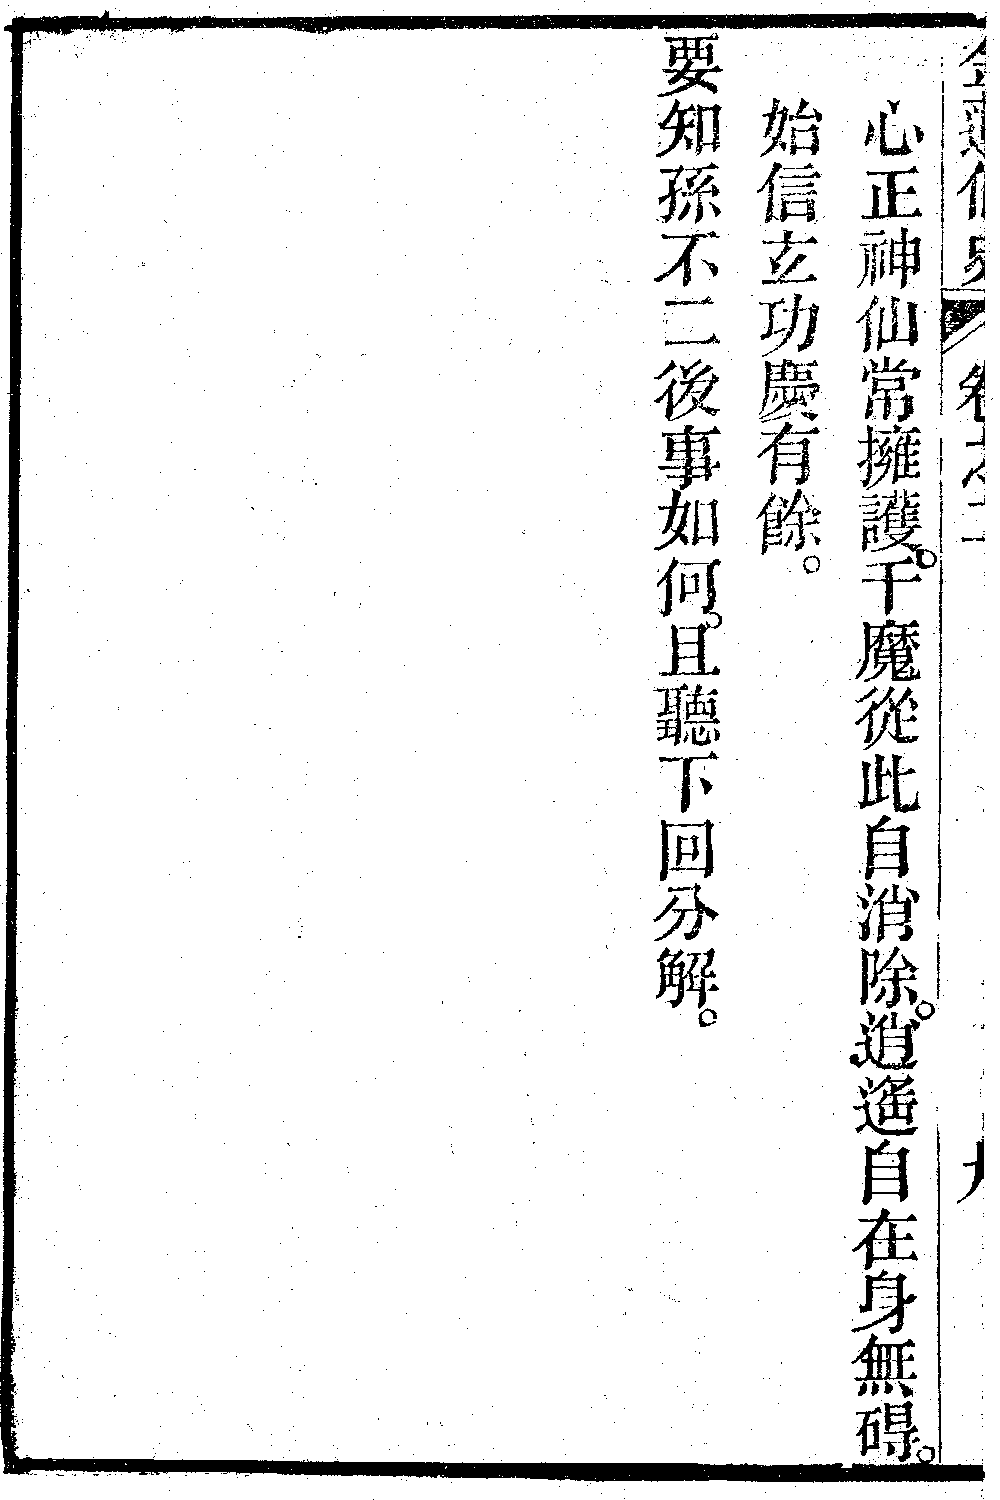 金蓮仙史 卷之二 九
心正神仙常擁護。千魔從此自消除。逍遙自在身無碍。
始信玄功慶有餘。
要知孫不二後事如何。且聽下回分解。